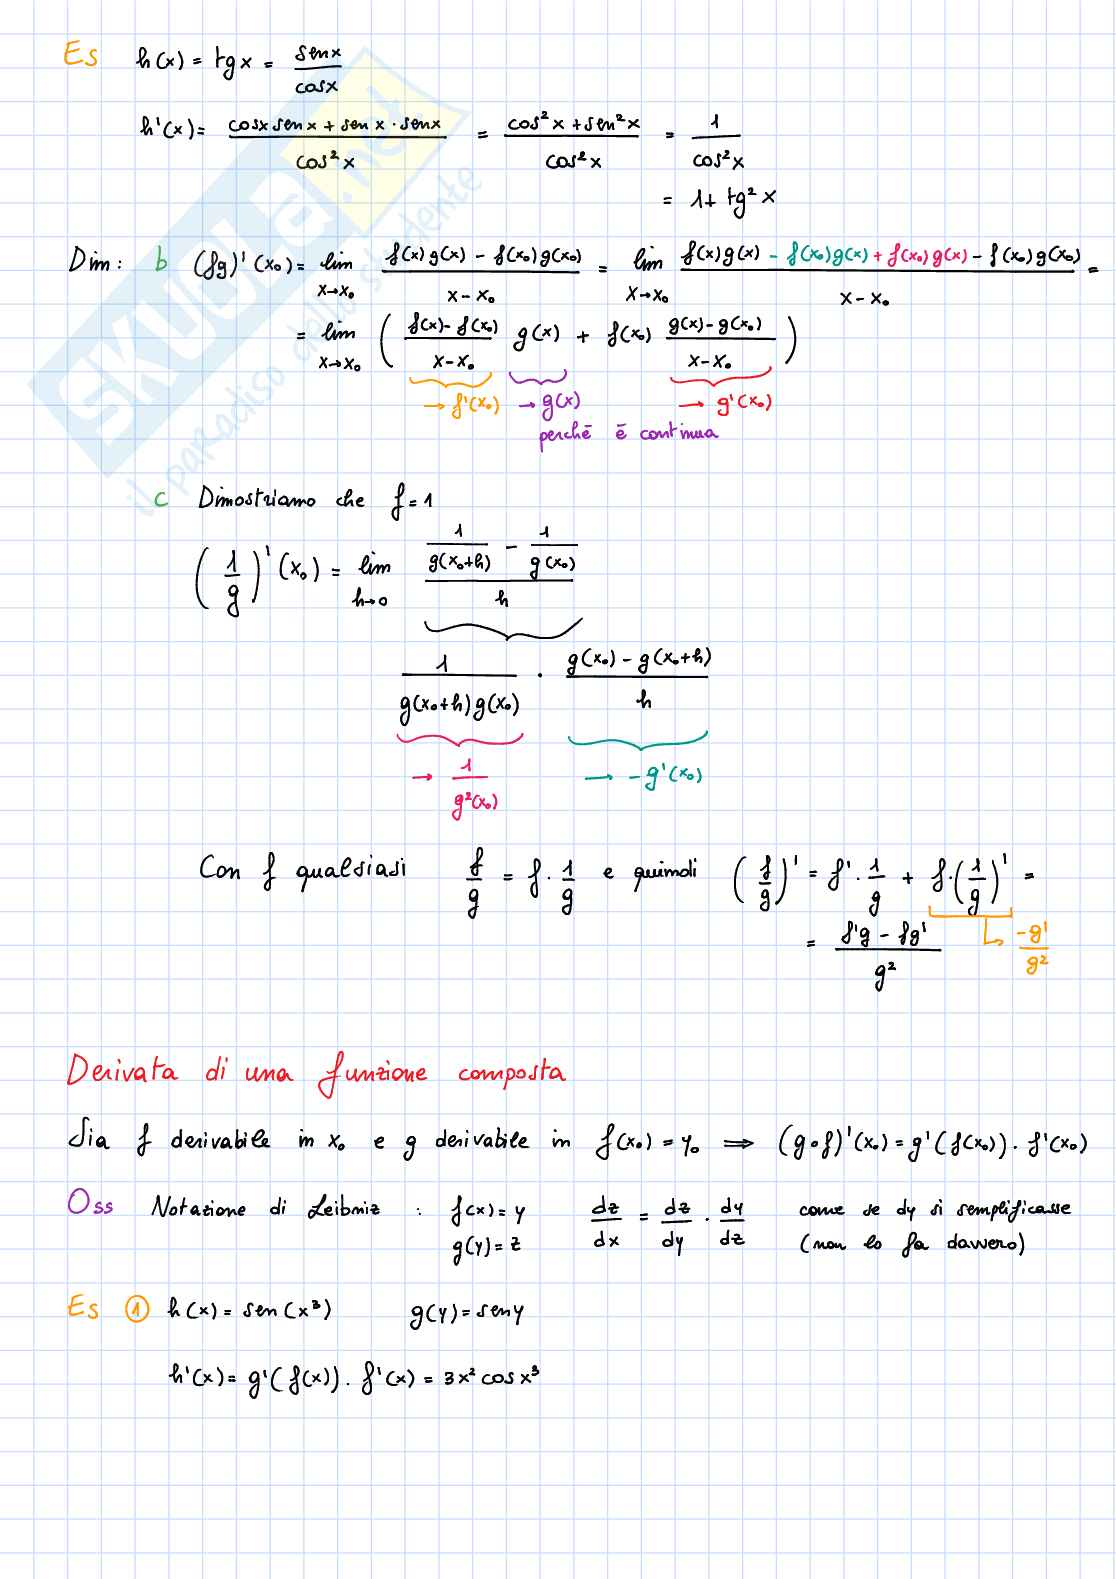 Es h(x) = tgx = senx/cosx
h'(x) = (cosx senx + senx · senx)/cos²x = (cos²x + sen²x)/cos²x = 1/cos²x
= 1 + tg²x
Dim: b (fg)'(x₀) = lim x→x₀ (f(x)g(x) - f(x₀)g(x₀))/(x - x₀) = lim x→x₀ (f(x)g(x) - f(x₀)g(x) + f(x₀)g(x) - f(x₀)g(x₀))/(x - x₀) =
= lim x→x₀ ( (f(x) - f(x₀))/(x - x₀) g(x) + f(x₀) (g(x) - g(x₀))/(x - x₀) )
→ f'(x₀) → g(x) → g'(x₀)
perché è continua
c Dimostriamo che f = 1
(1/g)'(x₀) = lim h→0 (1/g(x₀+h) - 1/g(x₀))/h
1/(g(x₀+h)g(x₀)) · (g(x₀) - g(x₀+h))/h
→ 1/g²(x₀) → -g'(x₀)
Con f qualsiasi f/g = f · 1/g e quindi (f/g)' = f' · 1/g + f · (1/g)' =
= (f'g - fg')/g² -g'/g²
Derivata di una funzione composta
Sia f derivabile in x₀ e g derivabile in f(x₀) = y₀ ⟹ (g∘f)'(x₀) = g'(f(x₀)) · f'(x₀)
Oss Notazione di Leibniz : f(x) = y dz/dx = dz/dy · dy/dz come se dy si semplificasse
g(y) = z (non lo fa davvero)
Es ① h(x) = sen(x³) g(y) = seny
h'(x) = g'(f(x)) · f'(x) = 3x² cos x³
SKUOLA.net
il paradiso dello studente